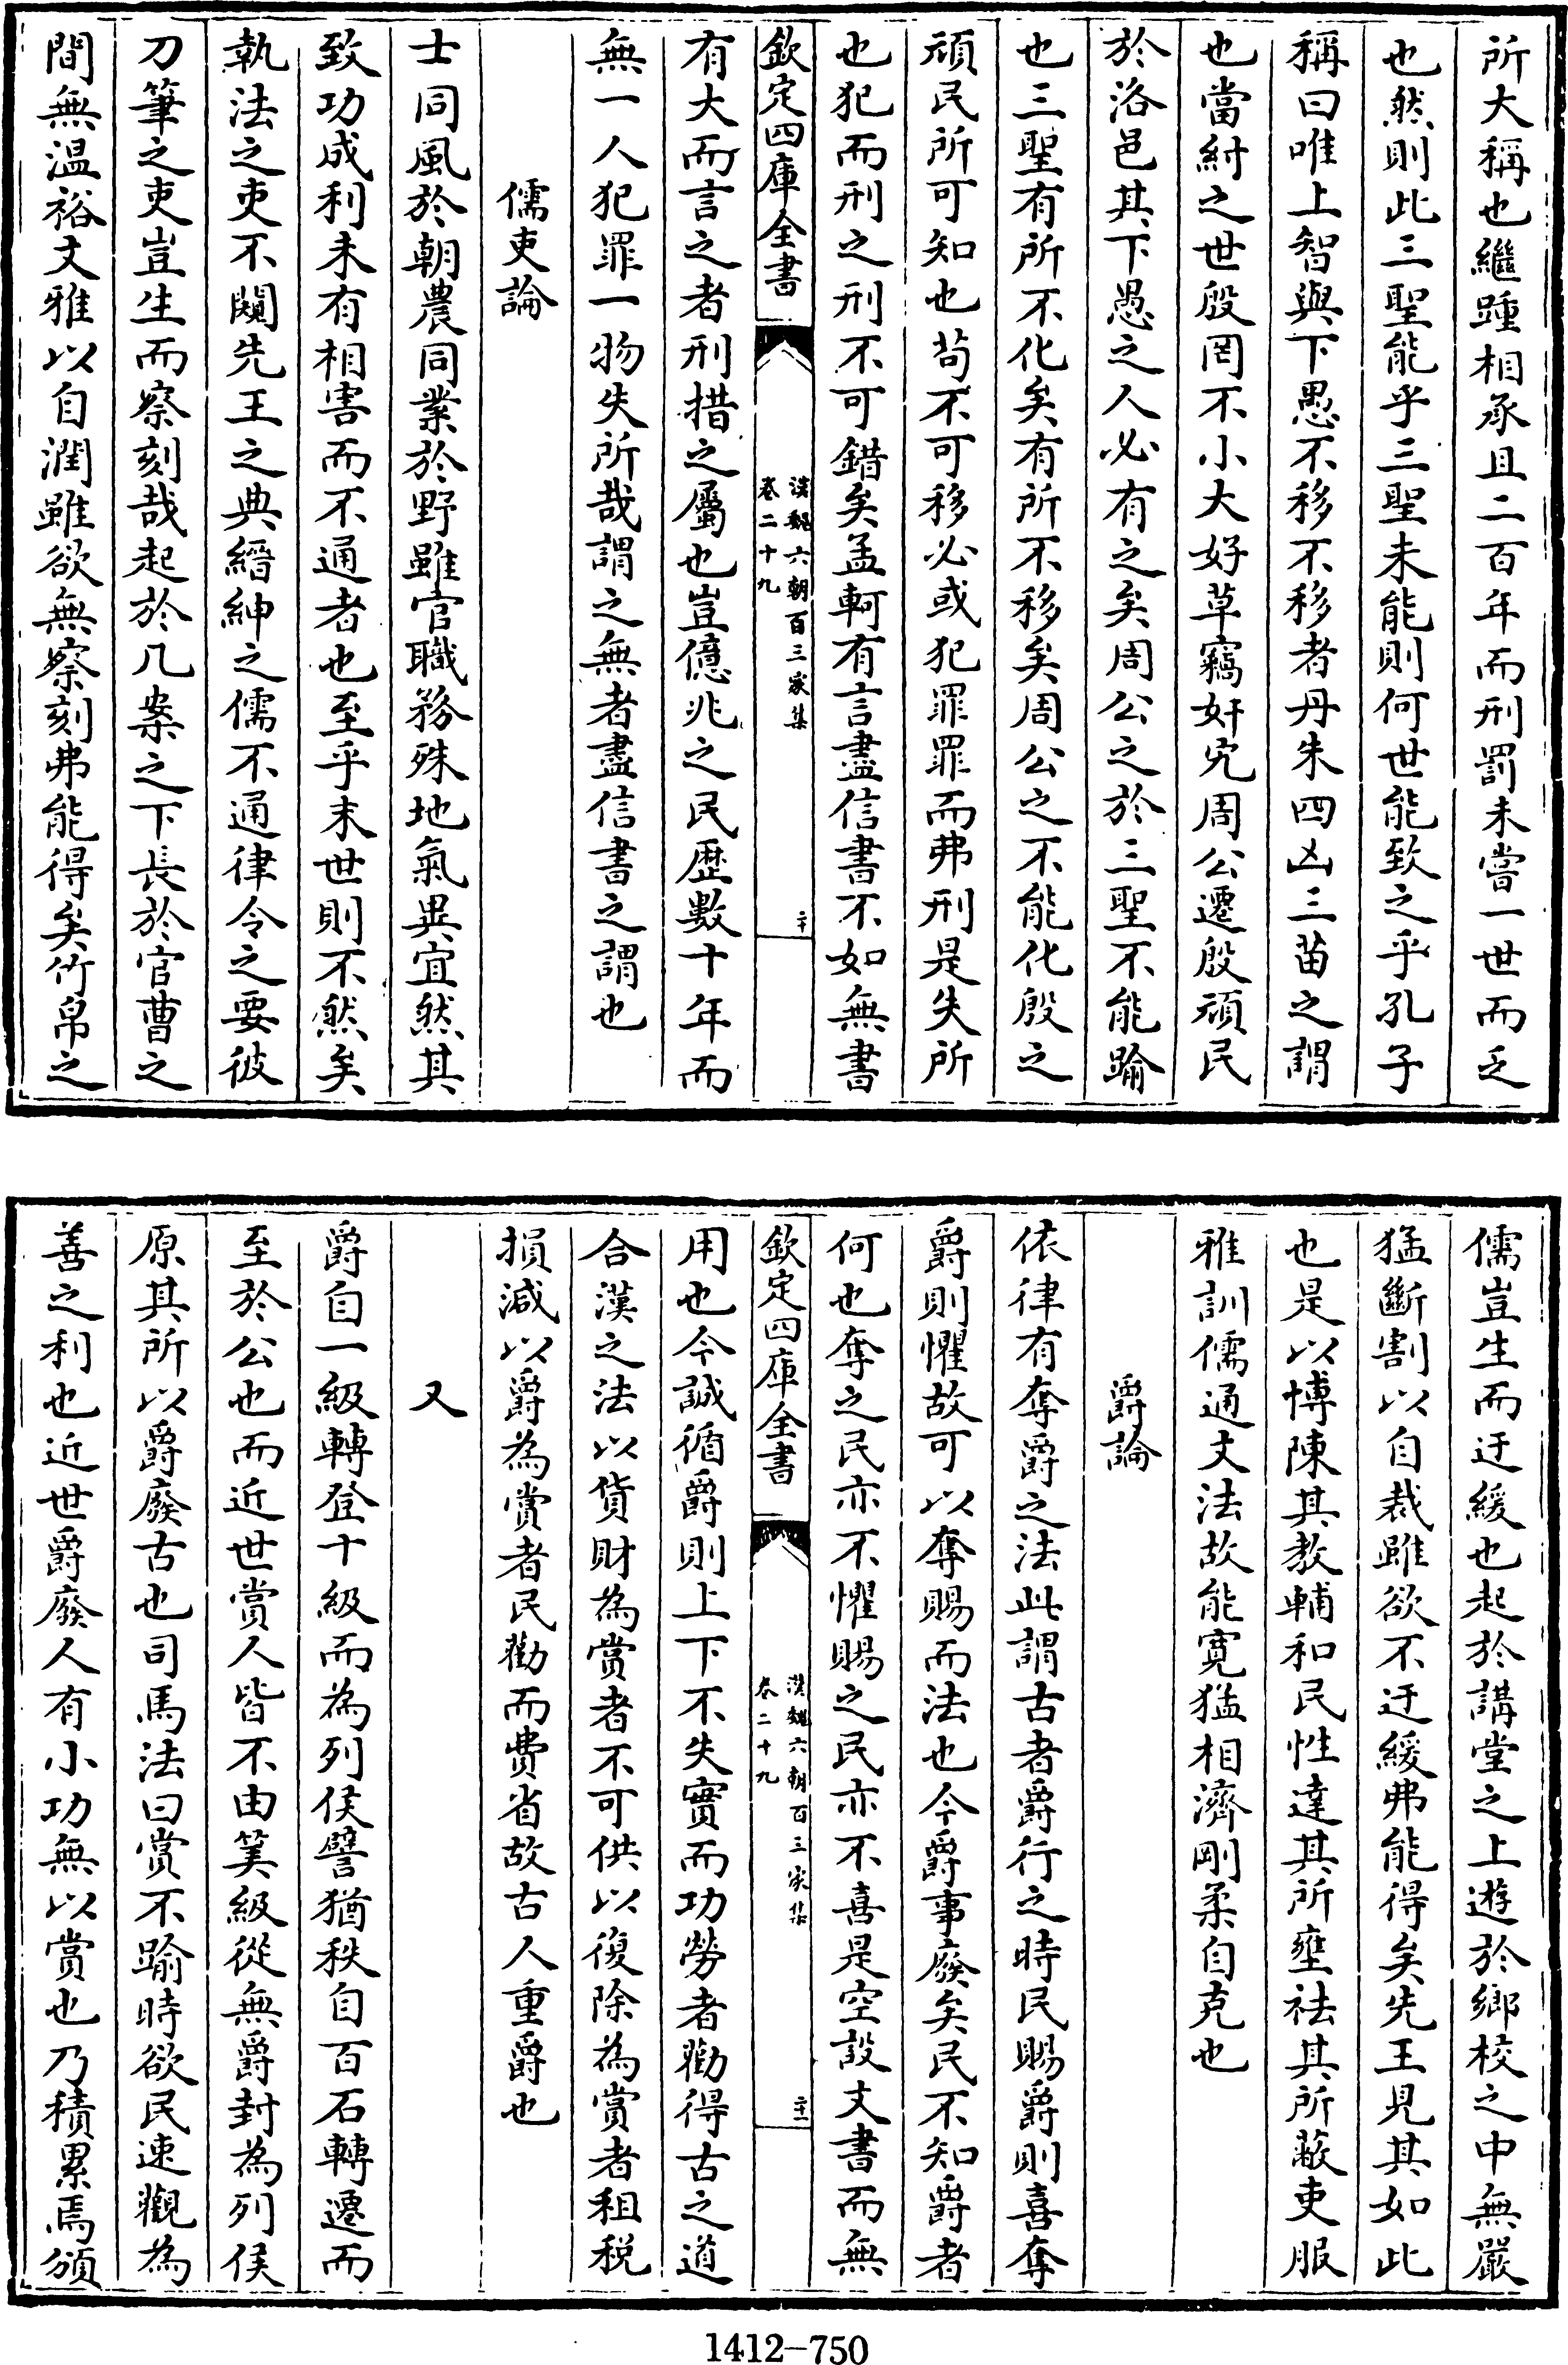 所大稱也繼踵相承且二百年而刑罰未嘗一世而乏
也然則此三聖能乎三聖未能則何世能致之乎孔子
稱曰唯上智與下愚不移不移者丹朱四凶三苗之謂
也當紂之世殷罔不小大好草竊奸宄周公遷殷頑民
於洛邑其下愚之人必有之矣周公之於三聖不能踰
也三聖有所不化矣有所不移矣周公之不能化殷之
頑民所可知也苟不可移必或犯罪罪而弗刑是失所
也犯而刑之刑不可錯矣孟軻有言盡信書不如無書
欽定四庫全書
漢魏六朝百三家集
卷二十九
二十
有大而言之者刑措之屬也豈億兆之民歴數十年而
無一人犯罪一物失所哉謂之無者盡信書之謂也
儒吏論
士同風於朝農同業於野雖官職務殊地氣異宜然其
致功成利未有相害而不通者也至乎末世則不然矣
執法之吏不闚先王之典縉紳之儒不通律令之要彼
刀筆之吏豈生而察刻哉起於几案之下長於官曹之
間無温裕文雅以自潤雖欲無察刻弗能得矣竹帛之
儒豈生而迂緩也起於講堂之上遊於鄉校之中無嚴
猛斷割以自裁雖欲不迂緩弗能得矣先王見其如此
也是以博陳其教輔和民性達其所壅袪其所蔽吏服
雅訓儒通文法故能寛猛相濟剛柔自克也
爵論
依律有奪爵之法此謂古者爵行之時民賜爵則喜奪
爵則懼故可以奪賜而法也今爵事廢矣民不知爵者
何也奪之民亦不懼賜之民亦不喜是空設文書而無
欽定四庫全書
漢魏六朝百三家集
卷二十九
二十一
用也今誠循爵則上下不失實而功勞者勸得古之道
合漢之法以貨財為賞者不可供以復除為賞者租税
損減以爵為賞者民勸而費省故古人重爵也
又
爵自一級轉登十級而為列侯譬猶秩自百石轉遷而
至於公也而近世賞人皆不由等級從無爵封為列侯
原其所以爵廢古也司馬法曰賞不踰時欲民速覩為
善之利也近世爵廢人有小功無以賞也乃積累焉須
1412-750